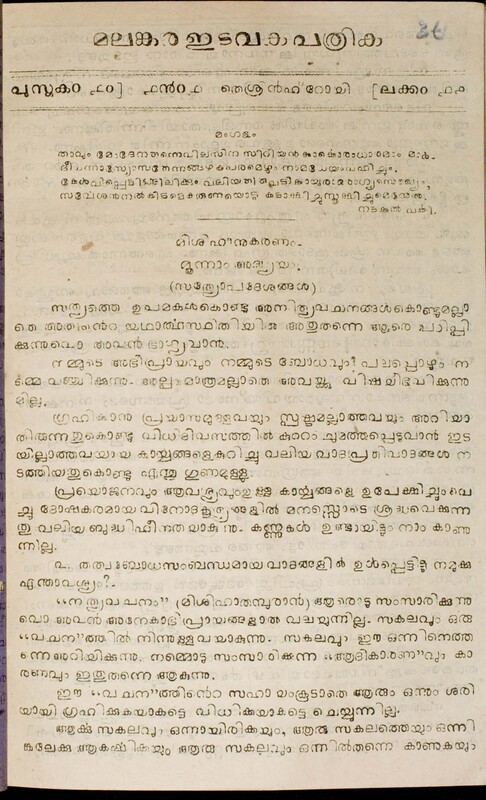 36
മലങ്കര ഇടവക പത്രിക
പുസ്തകം ൧൦] ൧൯൦൧ തെശ്രീൻഹ്റോയി [ലക്കം ൧൧
മംഗളം
നടക്കൽ വക്കി.
മിശിഹാനുകരണം.
മൂന്നാം അദ്ധ്യായം.
(സത്യോപദേശങ്ങൾ)
സത്യത്തെ ഉപമകൾകൊണ്ടും അനിത്യവചനങ്ങൾകൊണ്ടുമല്ലാ
തെ അതിന്റെ യഥാർത്ഥസ്ഥിതിയിൽ അതുതന്നെ ആരെ പഠിപ്പി
ക്കുന്നുവൊ അവൻ ഭാഗ്യവാൻ.
നമ്മുടെ അഭിപ്രായവും നമ്മുടെ ബോധവും പലപ്പൊഴും ന
മ്മെ വഞ്ചിക്കുന്നു. അല്പം മാത്രമല്ലാതെ അവയ്ക്കു വിഷയീഭവിക്കുന്നു
മില്ല.
ഗ്രഹിക്കാൻ പ്രയാസമുള്ളവയും സ്പഷ്ടമല്ലാത്തവയും അറിയാ
തിരുന്നതുകൊണ്ടു വിധിദിവസത്തിൽ കുറ്റം ചുമത്തപ്പെടുവാൻ ഇട
യില്ലാത്തവയായ കാര്യങ്ങളെകുറിച്ചു വലിയ വാദപ്രതിവാദങ്ങൾ ന
ടത്തിയതുകൊണ്ടു എന്തു ഗുണമുള്ളു.
പ്രയൊജനവും ആവശ്യവും ഉള്ള കാര്യങ്ങളെ ഉപേക്ഷിച്ചുംവെ
ച്ചു ദോഷകരമായ വിനോദകൃത്യങ്ങളിൽ മനസ്സൊടെ ശ്രദ്ധവെക്കുന്ന
തു വലിയ ബുദ്ധിഹീനതയാകുന്നു. കണ്ണുകൾ ഉണ്ടായിട്ടും നാം കാണു
ന്നില്ല.
൨. തത്വബോധസംബന്ധമായ വാദങ്ങളിൽ ഉൾപ്പെട്ടിട്ടു നമുക്കു
എന്താവശ്യം?
“നിത്യവചനം” (മിശിഹാതമ്പുരാൻ) ആരൊടു സംസാരിക്കുന്നു
വൊ അവൻ അനേകാഭിപ്രായങ്ങളാൽ വലയുന്നില്ല. സകലവും ഒരു
“വചന”ത്തിൽ നിന്നുള്ളവയാകുന്നു. സകലവും ഈ ഒന്നിനെത്ത
ന്നെ അറിയിക്കുന്നു. നമ്മൊടു സംസാരിക്കുന്ന “ആദികാരണ”വും കാ
രണവും ഇതുതന്നെ ആകുന്നു.
ഈ “വചന”ത്തിന്റെ സഹായംകൂടാതെ ആരും ഒന്നും ശരി
യായി ഗ്രഹിക്കുകയാകട്ടെ വിധിക്കയാകട്ടെ ചെയ്യുന്നില്ല.
ആർക്കു സകലവും ഒന്നായിരിക്കയും, ആരു സകലത്തെയും ഒന്നി
ങ്കലേക്കു ആകർഷിക്കയും ആരു സകലവും ഒന്നിൽതന്നെ കാണുകയും